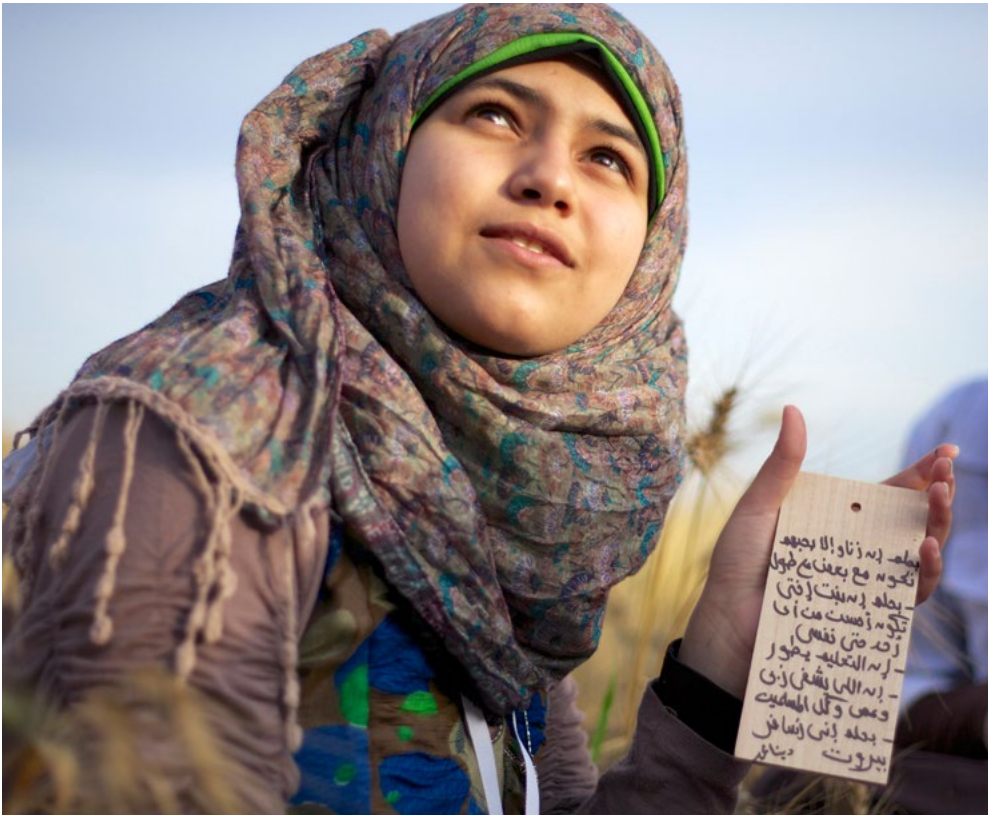 بحلم إنه أنا و إلا بحبهم
نكونه مع بعض على طول
- بحلم إنه بنت أختى
تكونه أحسن من أى
أحد حتى نفسى
- إنه التعليم يطور
- إنه اللى يشفى
وعمى وكل المسلمين
- بحلم إنى أسافر
بيروت